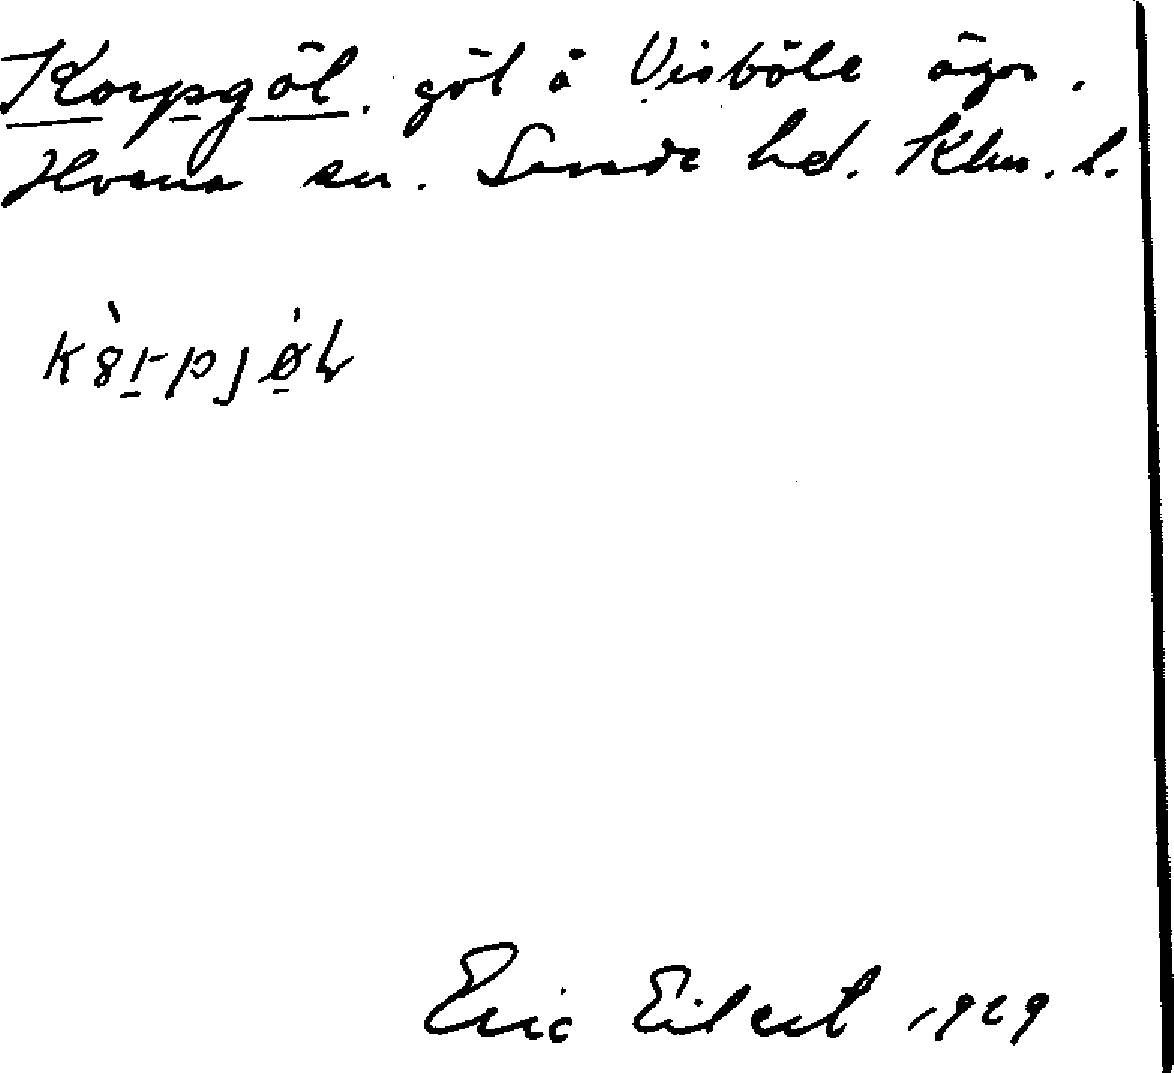 Korpgöl. göl å Visböle ägor.
Hvena sn. Sevede hd. Klm. l.
kȣ̀rpjø̀l
Eric Eilert 1929